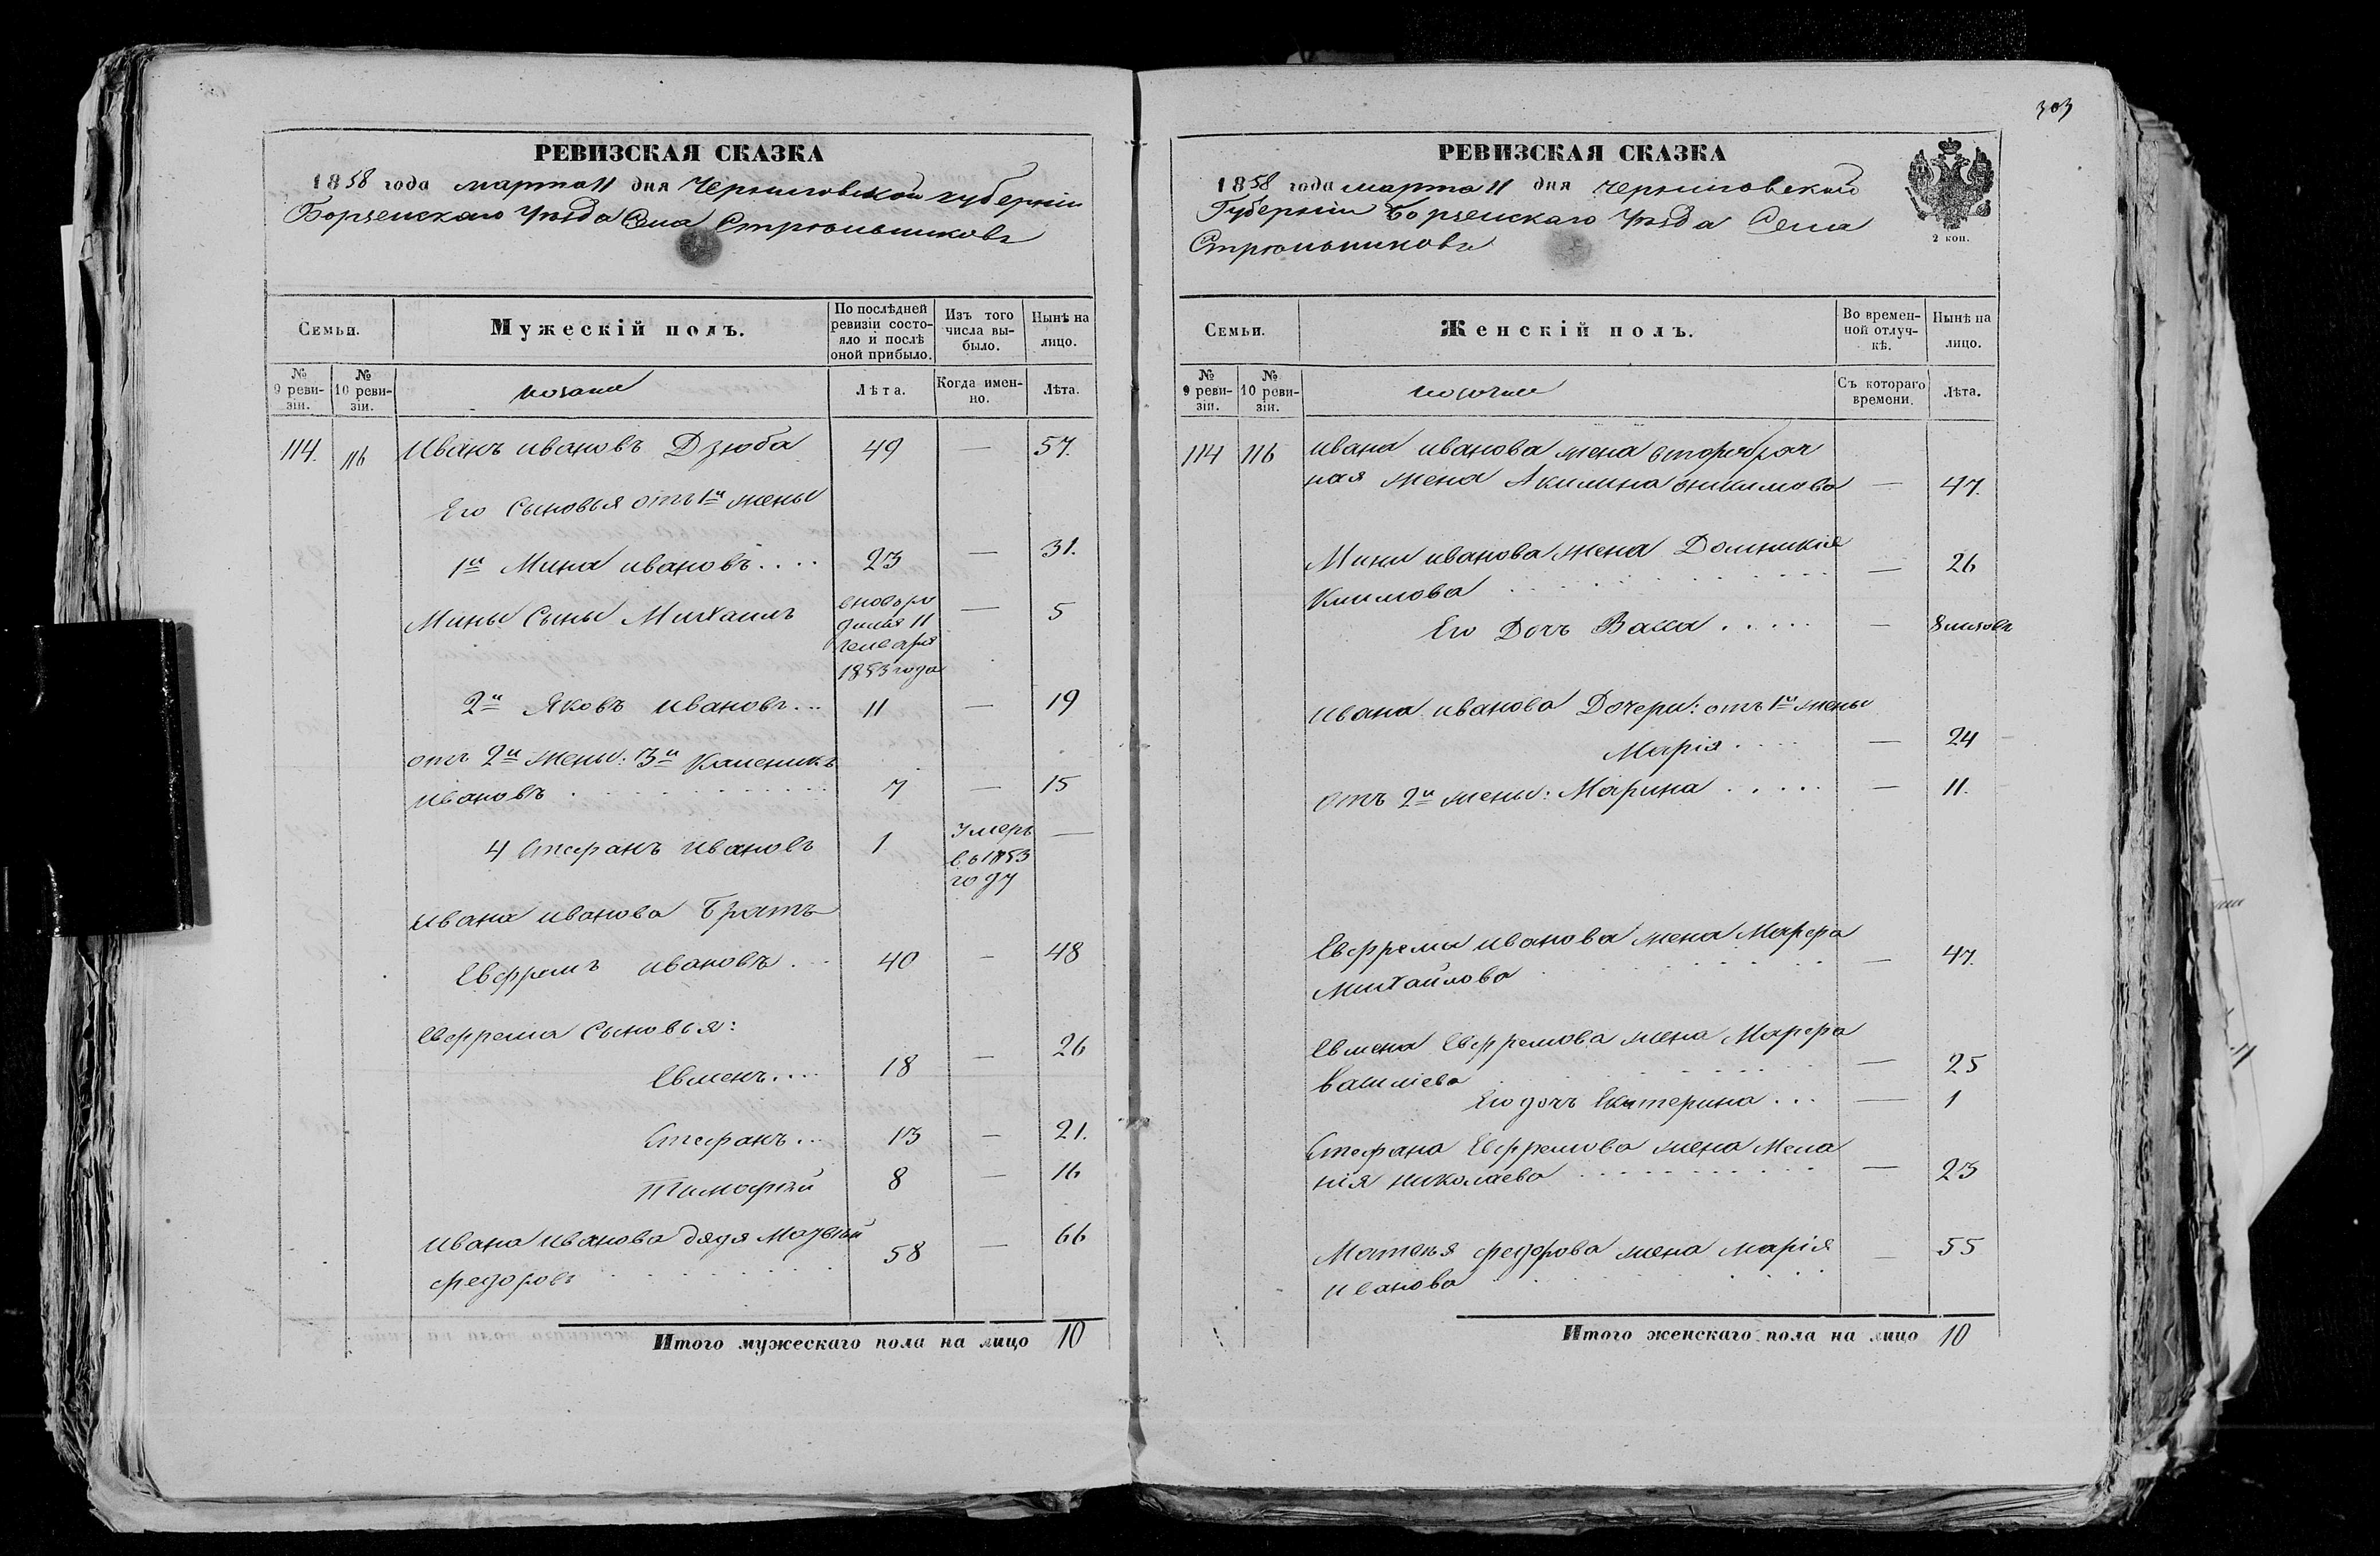 РЕВИЗСКАЯ СКАЗКА
1858 года марта 11 дня Черниговской губерніи
Борзенскаго Уѣзда Села Стрѣльниковъ
Семьи.
Мужескій полъ.
По послѣдней ревизіи состояло и послѣ оной прибыло.
Изъ того числа выбыло.
Нынѣ на лицо.
№ 9 ревизіи.
№ 10 ревизіи.
козаки
Лѣта.
Когда именно.
Лѣта.
114. 116 Иванъ Ивановъ Дзюба 49 — 57.
Его Сыновья отъ 1й жены
1й Мина Ивановъ.... 23 — 31.
Мины Сынъ Михаилъ — 5
11 Генваря
1853 года
2й Яковъ Ивановъ... 11 — 19
отъ 2й жены: 3й Каленикъ
Ивановъ 7 — 15
4 Стефанъ Ивановъ 1 Умеръ —
въ 1853
году
Ивана Иванова Братъ
Евфремъ Ивановъ... 40 — 48
Евфрема Сыновья:
Евменъ.... 18 — 26
Стефанъ... 13 — 21.
Тимофѣй 8 — 16
Ивана Иванова дядя 58 — 66
Федоровъ
Итого мужескаго пола на лицо 10
303
РЕВИЗСКАЯ СКАЗКА
1858 года марта 11 дня Черниговской
Губерніи Борзенскаго Уѣзда Села
Стрѣльниковъ
2 коп.
Семьи.
Женскій полъ.
Во временной отлучкѣ.
Нынѣ на лицо.
№ 9 ревизіи.
№ 10 ревизіи.
Съ котораго времени.
Лѣта.
114 116 Ивана Иванова жена второбрач
ная жена Акилина — 47.
Мины Иванова жена Домникія
Климова — 26
Его Дочъ Васса..... —
Ивана Иванова Дочери: отъ 1й жены
Марія.... — 24
отъ 2й жены: Марина..... — 11.
Евфрема Иванова жена Марфа
Михайлова — 47.
Евмена Евфремова жена Марфа
Василіева — 25
Его дочъ Екатерина... — 1
Стефана Евфремова жена Мела
нія Николаева — 23
Матвѣя Федорова жена Марія — 55
Иванова
Итого женскаго пола на лицо 10